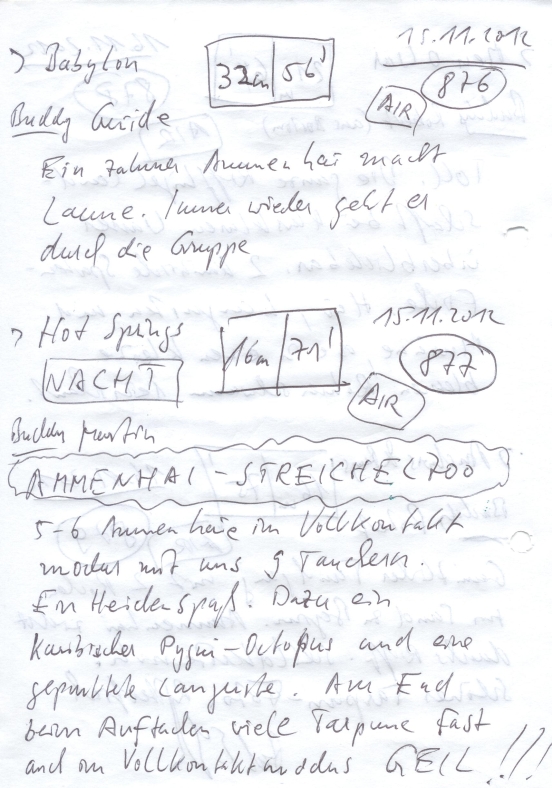 > Babylon 32m 56' 15.11.2012
876
AIR
Buddy Guide
Ein zahmer Ammenhai macht
Laune. Immer wieder geht er
durch die Gruppe
> Hot Springs 16m 71' 15.11.2012
NACHT 877
AIR
Buddy Martin
AMMENHAI - STREICHELZOO
5-6 Ammenhaie im Vollkontakt
modus mit uns 9 Tauchern.
Ein Heidenspaß. Dazu ein
Karibischer Pygmi-Octopus und eine
gepunktete Languste. Am End
beim Auftauchen viele Tarpune fast
auch im Vollkontaktmodus GEIL!!!